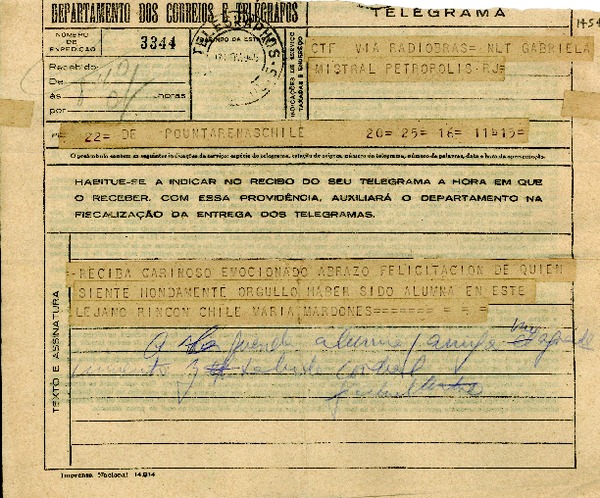 DEPARTAMENTO DOS CORREIOS E TELÉGRAFOS
TELEGRAMA
NÚMERO DE EXPEDIÇÃO
3344
CARIMBO DA ESTAÇÃO
INDICAÇÕES DE SERVIÇO TAXADAS E ENDEREÇO
CTF VIA RADIOBRAS= NLT GABRIELA
MISTRAL PETROPOLIS-RJ=
Recebido:
De
às horas
por
22= DE POUNTARENASCHILE 20= 25= 16= 11=15=
O preâmbulo contém as seguintes indicações de serviço: espécie do telegrama, estação de origem, número do telegrama, número de palavras, data e hora da apresentação.
HABITUE-SE A INDICAR NO RECIBO DO SEU TELEGRAMA A HORA EM QUE
O RECEBER. COM ESSA PROVIDÊNCIA, AUXILIARÁ O DEPARTAMENTO NA
FISCALIZAÇÃO DA ENTREGA DOS TELEGRAMAS.
TEXTO E ASSINATURA
-RECIBA CARINOSO EMOCIONADO ABRAZO FELICITACION DE QUIEN
SIENTE HONDAMENTE ORGULLO HABER SIDO ALUMNA EN ESTE
LEJANO RINCON CHILE MARIA MARDONES======= = = =
alumna
Imprensa Nacional 14.014